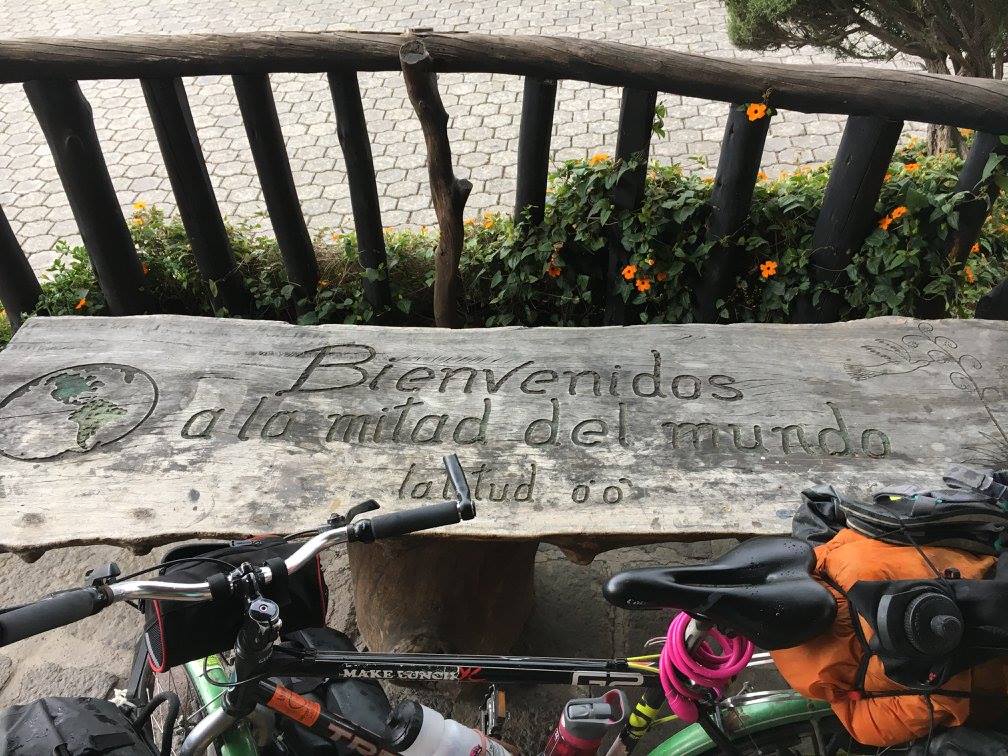 Bienvenidos
a la mitad del mundo
latitud 0°0°
MAKE LUNCH